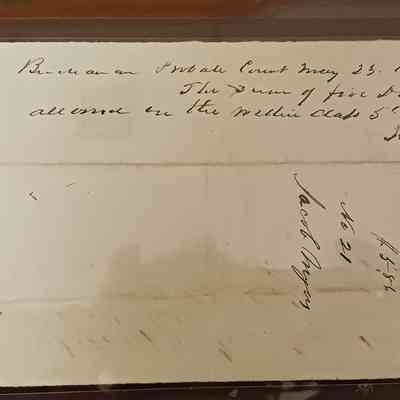 Buchanan Probate Court May 23.
The Sum of five D
allowed in the within Class 5
$5.56
No 21
Jacob